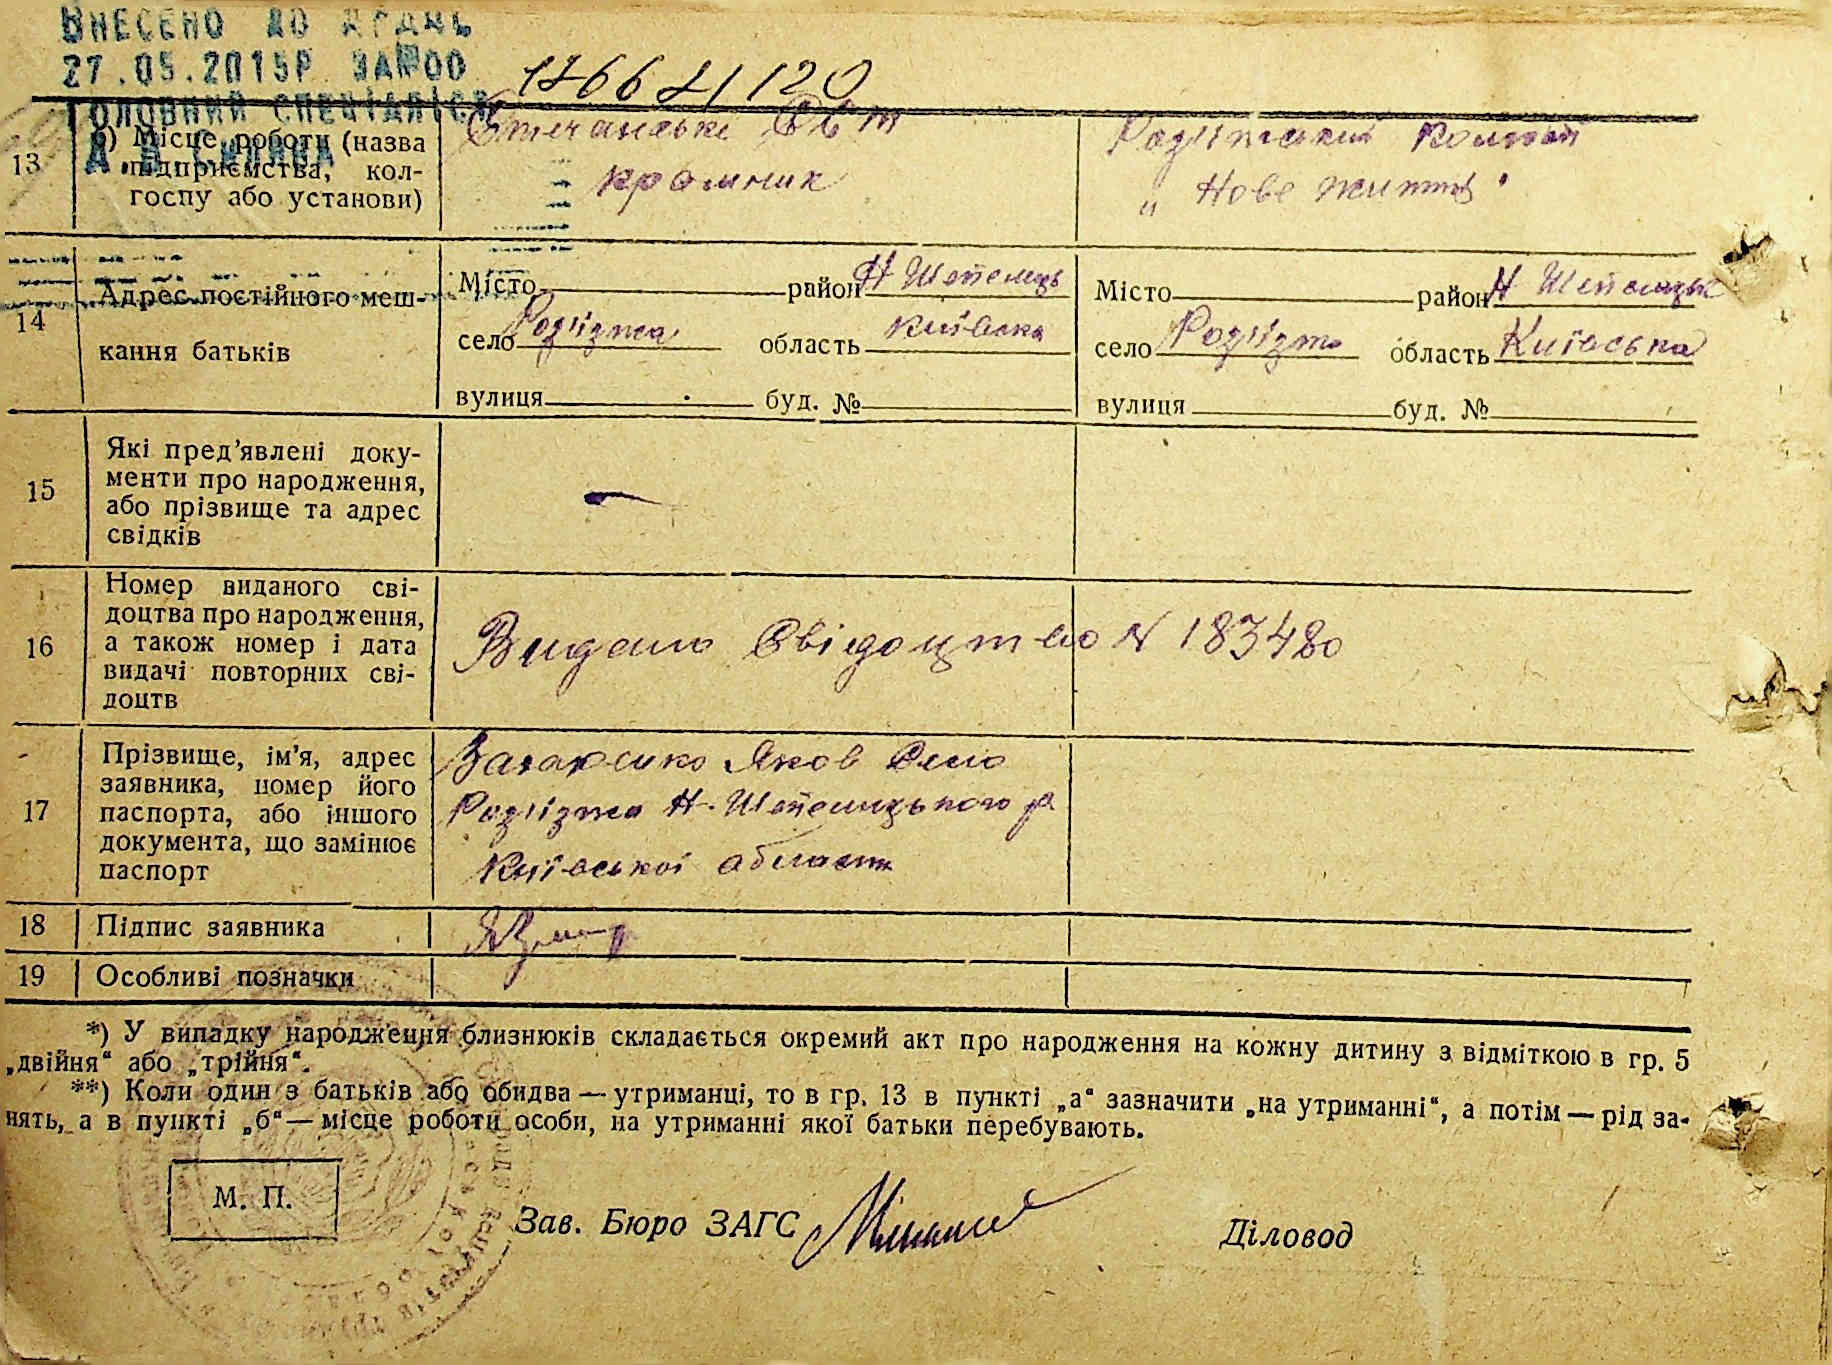 ВНЕСЕНО ДО ДРАЦС
27.05.2015Р ЗА №00
ГОЛОВНИЙ СПЕЦІАЛІСТ
13
б) Місце роботи (назва
підприємства, кол-
госпу або установи)
крамник
колгосп
„Нове життя"
14
Адрес постійного меш-
кання батьків
Місто район Н Шепелицьк
село Роз'їзжа область Київська
вулиця буд. №
Місто район Н Шепелицьк
село Роз'їзжа область Київська
вулиця буд. №
15
Які пред'явлені доку-
менти про народження,
або прізвище та адрес
свідків
16
Номер виданого сві-
доцтва про народження,
а також номер і дата
видачі повторних сві-
доцтв
Видано Свідоцтво N 183480
17
Прізвище, ім'я, адрес
заявника, номер його
паспорта, або іншого
документа, що замінює
паспорт
Захарсико Яков Село
Роз'їзжа Н-Шепелицького р
Київської области
18 Підпис заявника
19 Особливі позначки
*) У випадку народження близнюків складається окремий акт про народження на кожну дитину з відміткою в гр. 5
„двійня“ або „трійня“.
**) Коли один з батьків або обидва — утриманці, то в гр. 13 в пункті „а“ зазначити „на утриманні“, а потім — рід за-
нять, а в пункті „б“ — місце роботи особи, на утриманні якої батьки перебувають.
М. П.
Зав. Бюро ЗАГС
Діловод